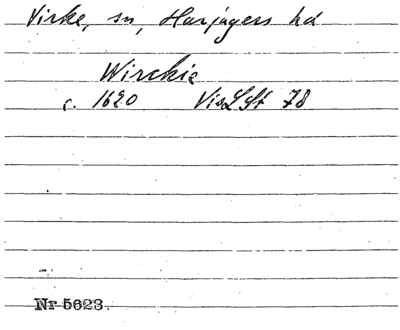 Virke, sn, Harjagers hd
Wirckie
c. 1620 VisLSt 78
Nr 5623.